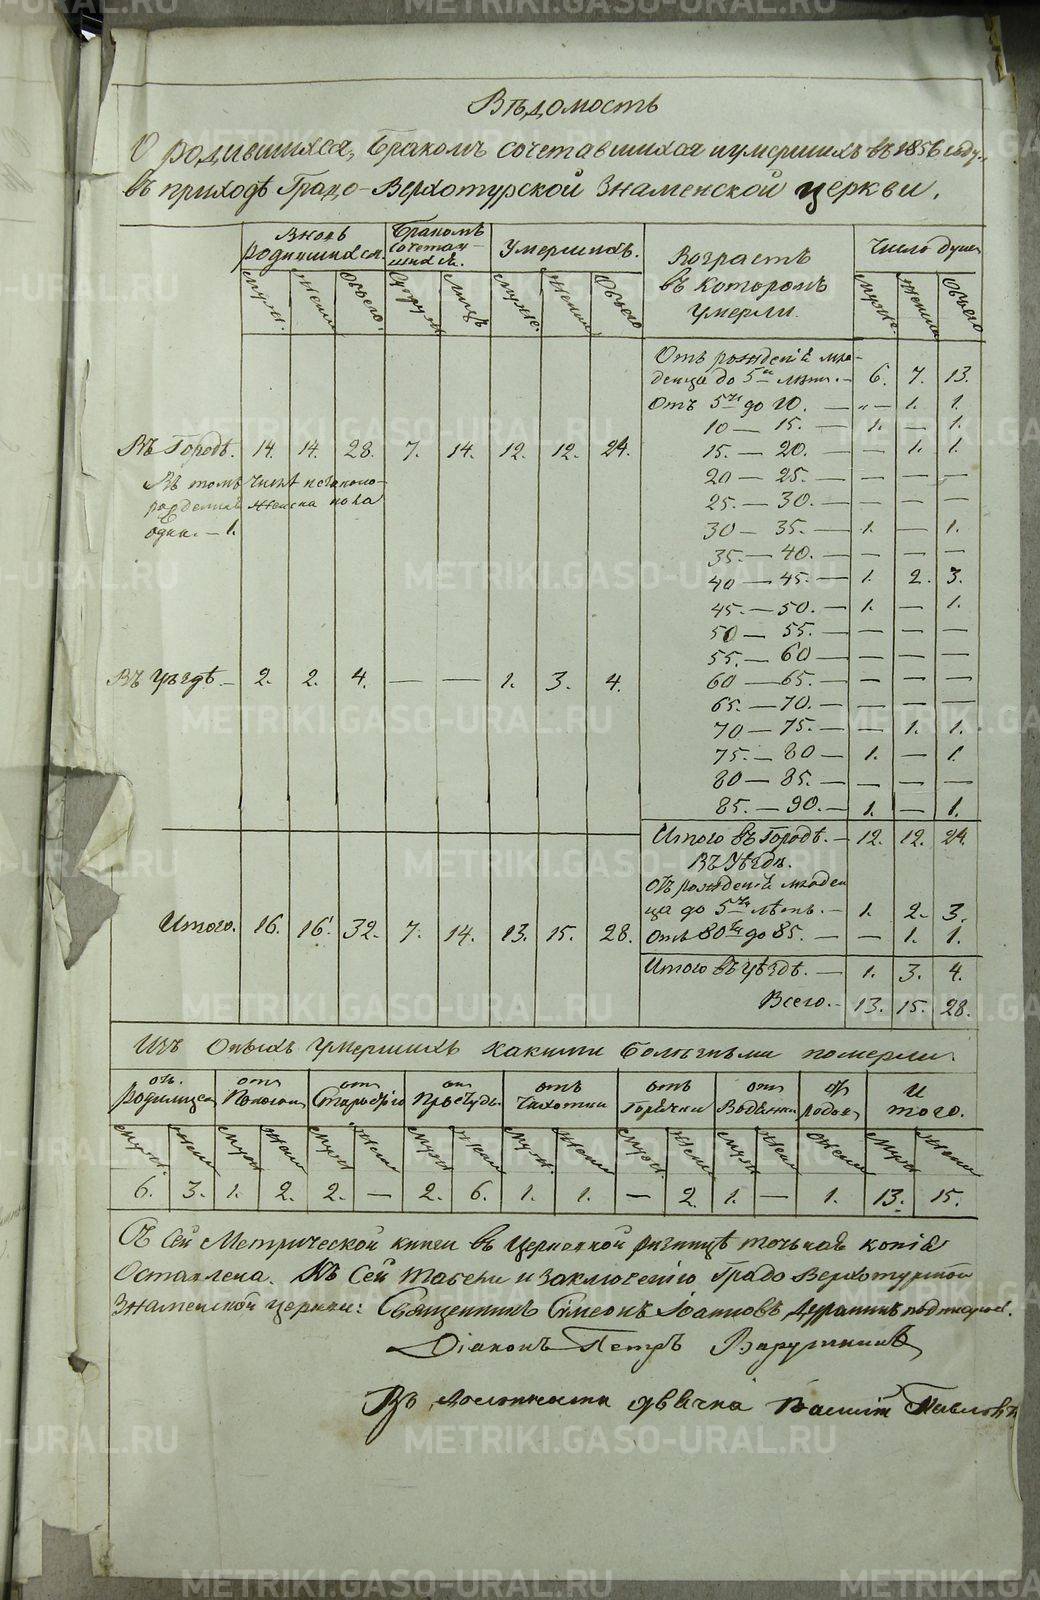 Вѣдомость
О родившихся, бракомъ сочетавшихся и умершихъ въ 1856 году,
въ приходѣ Градо-Верхотурской Знаменской церкви.
Вновь родившихся.
Бракомъ сочетавшихся.
Умершихъ.
Возрастъ въ которомъ умерли.
Число душъ
Муж. Женск. Обоего. Супруж. Лицъ Муж. Женск. Обоего Муж. Женск. Обоего
Отъ рожденiя мла-
денца до 5ти лѣтъ. — 6. 7. 13.
Отъ 5ти до 10. — „ — 1. 1.
10 — 15. — 1. — 1.
Въ Городѣ. 14. 14. 28. 7. 14. 12. 12. 24. 15. — 20. — — 1. 1.
Въ томъ числѣ незаконо-
рожденная женска пола
одна. — 1.
20 — 25. — — — —
25. — 30. — — — —
30 — 35. — 1. — 1.
35. — 40. — — — —
40 — 45. — 1. 2. 3.
45. — 50. — 1. — 1.
50 — 55. — — — —
55. — 60 — — — —
Въ Уѣздѣ — 2. 2. 4. — — 1. 3. 4. 60 — 65. — — — —
65. — 70. — — — —
70 — 75. — — 1. 1.
75. — 80 — 1. — 1.
80 — 85. — — — —
85. — 90. — 1. — 1.
Итого въ Городѣ. — 12. 12. 24.
Въ Уѣздѣ.
Отъ рожденiя младен
ца до 5ти лѣтъ. — 1. 2. 3.
Итого. 16. 16. 32. 7. 14. 13. 15. 28. Отъ 80ти до 85. — — 1. 1.
Итого въ уѣздѣ. — 1. 3. 4.
Всего. — 13. 15. 28.
Изъ Оныхъ умершихъ какими болѣзньми померли
отъ Родимца
отъ Поноса
отъ Старости
отъ Простуды
отъ Чахотки
отъ Горячки
отъ Водянки
отъ родовъ
Итого.
Муж. Женск. Муж. Женск. Муж. Женск. Муж. Женск. Муж. Женск. Муж. Женск. Муж. Женск. Женск. Муж. Женск.
6. 3. 1. 2. 2. — 2. 6. 1. 1. — 2. 1. — 1. 13. 15.
Съ Сей Метрической книги въ Церковной ризницѣ точьная копiя
Оставлена. Къ Сей табели и заключенiю Градо Верхотурской
Знаменской церкви: Священникъ Симеонъ Iоанновъ подписался.
Дiаконъ Петръ
Въ должности дьячка Василiй Павловъ